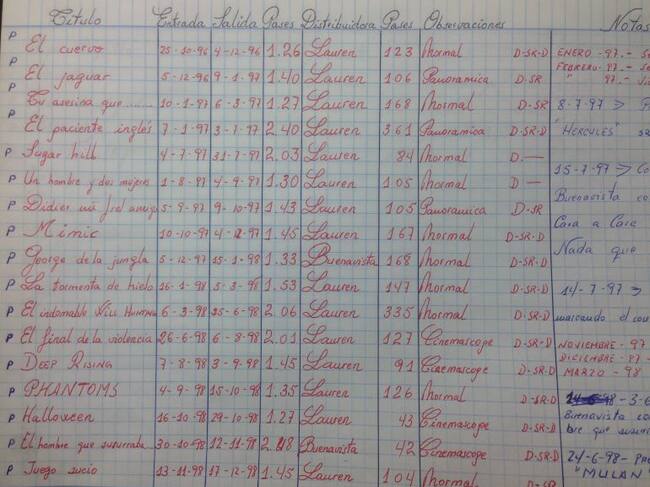 Título Entrada Salida Pases Distribuidora Pases Observaciones Notas
P El cuervo 25-10-96 4-12-96 1.26 Lauren 123 Normal D-SR-D ENERO-97.-
P El jaguar 5-12-96 9-1-97 1.40 Lauren 106 Panoramica D-SR FEBRERO-97.-
" 97.-
P Tu asesina que...... 10-1-97 6-3-97 1.27 Lauren 168 Normal D-SR 8-7-97 →
P El paciente inglés 7-1-97 3-7-97 2.40 Lauren 361 Panoramica D-SR-D "HERCULES"
P Sugar hill 4-7-97 31-7-97 2.03 Lauren 84 Normal D.—
P Un hombre y dos mujeres 1-8-97 4-9-97 1.30 Lauren 105 Normal D — 15-7-97 →
P Didier mi fiel amigo 5-9-97 9-10-97 1.43 Lauren 105 Panoramica D-SR Buenavista
P Mimic 10-10-97 4-12-97 1.45 Lauren 167 Normal D-SR-D Cara a Cara
P George de la jungla 5-12-97 15-1-98 1.33 Buenavista 168 Normal D-SR-D Nada que
P La tormenta de hielo 16-1-98 5-3-98 1.53 Lauren 147 Normal D-SR-D 14-7-97 →
P El indomable Will Hunting 6-3-98 25-6-98 2.06 Lauren 335 Normal D-SR-D marcando el
P El final de la violencia 26-6-98 6-8-98 2.01 Lauren 127 Cinemascope D-SR-D NOVIEMBRE-97
P DEEP RISING 7-8-98 3-9-98 1.45 Lauren 91 Cinemascope D-SR-D DICIEMBRE-97-
MARZO-98
P PHANTOMS 4-9-98 15-10-98 1.35 Lauren 126 Normal D-SR-D
P Halloween 16-10-98 29-10-98 1.27 Lauren 43 Cinemascope D-SR-D Buenavista
bre que
P El hombre que susurraba 30-10-98 12-11-98 2.48 Buenavista 42 Cinemascope D-SR-D 24-6-98-
P Juego sucio 13-11-98 17-12-98 1.45 Lauren 104 Normal D-SR-D "MULAN"